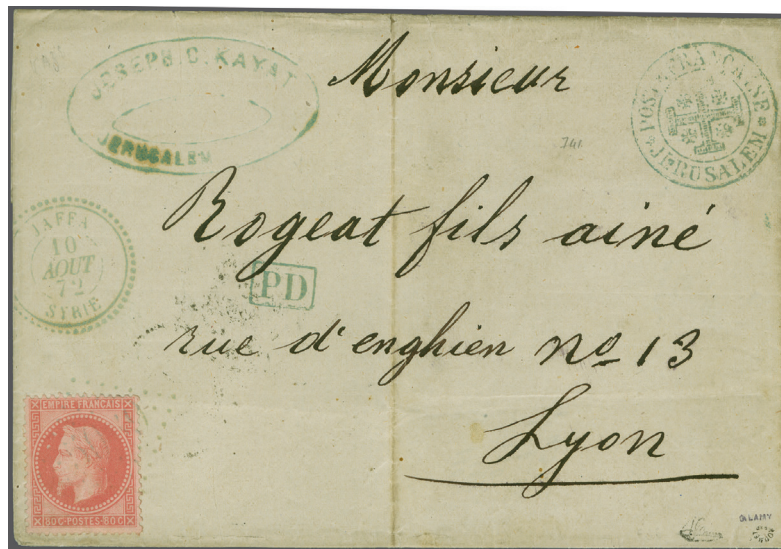 JOSEPH C. KAYAT
JERUSALEM
Monsieur
POSTE FRANÇAISE
JERUSALEM
JAFFA
10
AOUT
72
SYRIE
Rogeat fils ainé
PD
rue d'enghien no 13
Lyon
EMPIRE FRANÇAIS
80C-POSTES-80C
CALAMY